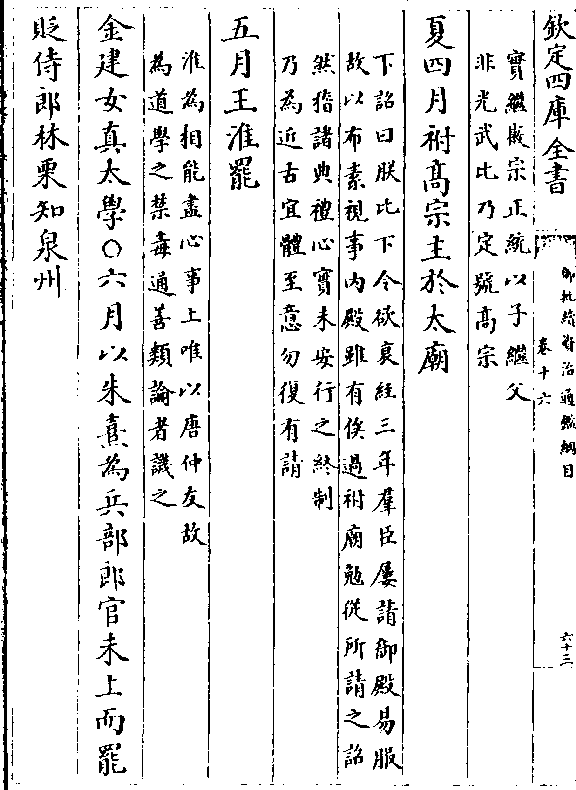 欽定四庫全書
御批續資治通鑑綱目
卷十六
六十三
實繼厥宗正統以子繼父
非光武比乃定號高宗
夏四月祔高宗主於太廟
下詔曰朕比下令欲衰絰三年羣臣屢請御殿易服
故以布素視事内殿雖有俟過祔廟勉從所請之詔
然稽諸典禮心實未安行之終制
乃為近古宜體至意勿復有請
五月王淮罷
淮為相能盡心事上唯以唐仲友故
為道學之禁毒逋善類論者譏之
金建女真太學○六月以朱熹為兵部郎官未上而罷
貶侍郎林栗知泉州